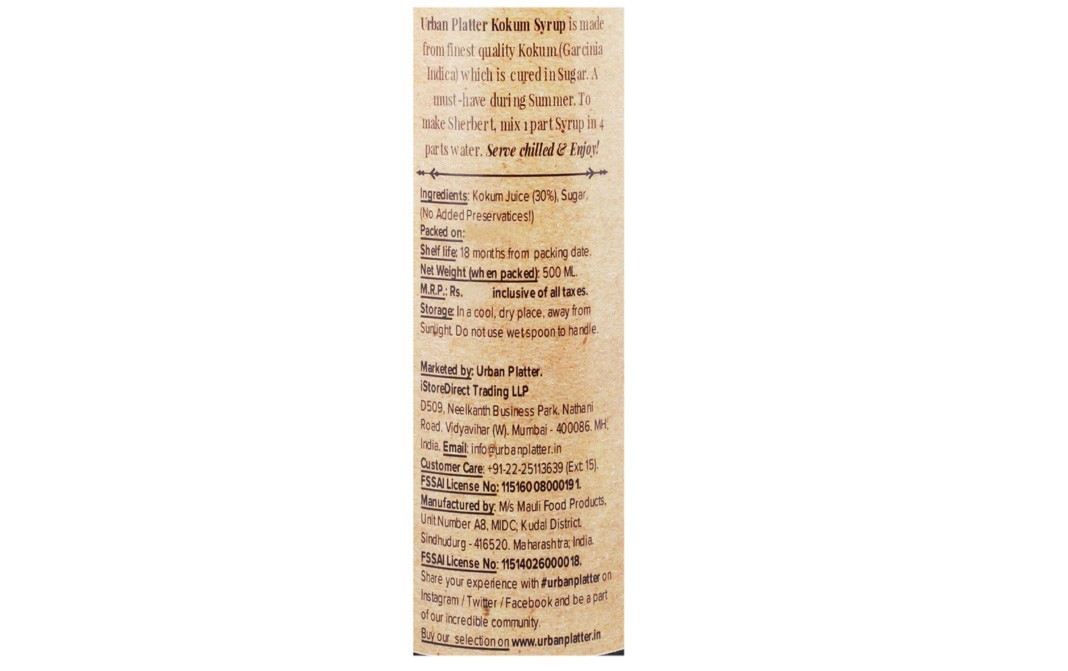 Urban Platter Kokum Syrup is made
from finest quality Kokum (Garcinia
Indica) which is cured in Sugar. A
must-have during Summer. To
make Sherbert, mix 1 part Syrup in 4
parts water. Serve chilled & Enjoy!
Ingredients: Kokum Juice (30%), Sugar.
(No Added Preservatices!)
Packed on:
Shelf life: 18 months from packing date.
Net Weight (when packed): 500 ML.
M.R.P.: Rs. inclusive of all taxes.
Storage: In a cool, dry place, away from
Sunlight. Do not use wet spoon to handle.
Marketed by: Urban Platter.
iStoreDirect Trading LLP
D509, Neelkanth Business Park, Nathani
Road, Vidyavihar (W). Mumbai - 400086. MH,
India. Email: info@urbanplatter.in
Customer Care: +91-22-25113639 (Ext: 15).
FSSAI License No: 11516008000191.
Manufactured by: M/s Mauli Food Products,
Unit Number A8, MIDC, Kudal District,
Sindhudurg - 416520. Maharashtra; India.
FSSAI License No: 11514026000018.
Share your experience with #urbanplatter on
Instagram / Twitter / Facebook and be a part
of our incredible community.
Buy our selection on www.urbanplatter.in